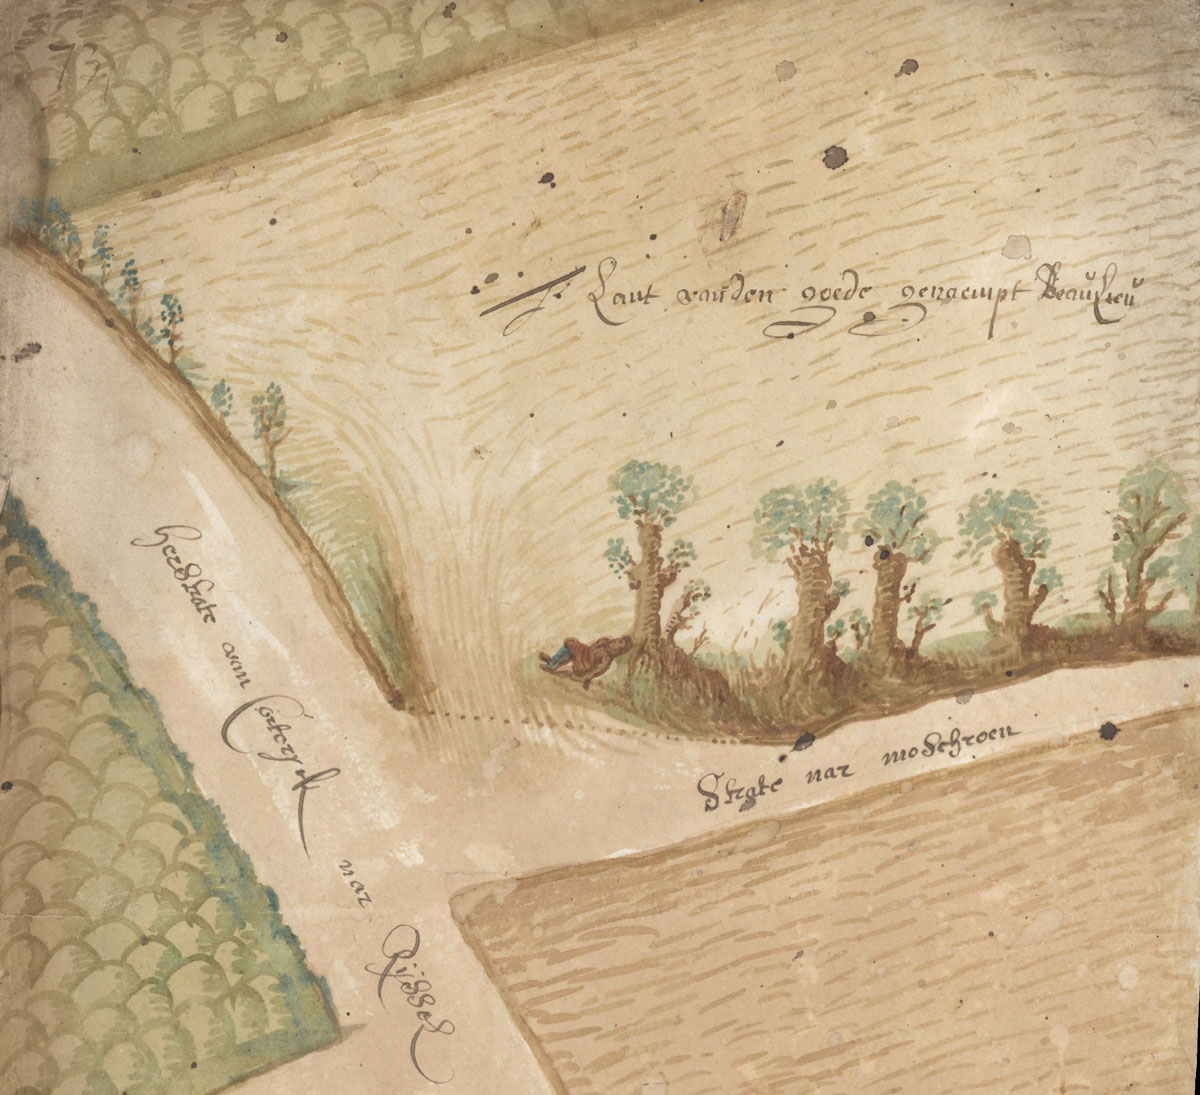 73
Lant vanden goede genaempt Beaulieu
Herstrate van Cortryck nar Ryssel
Strate nar moschroen